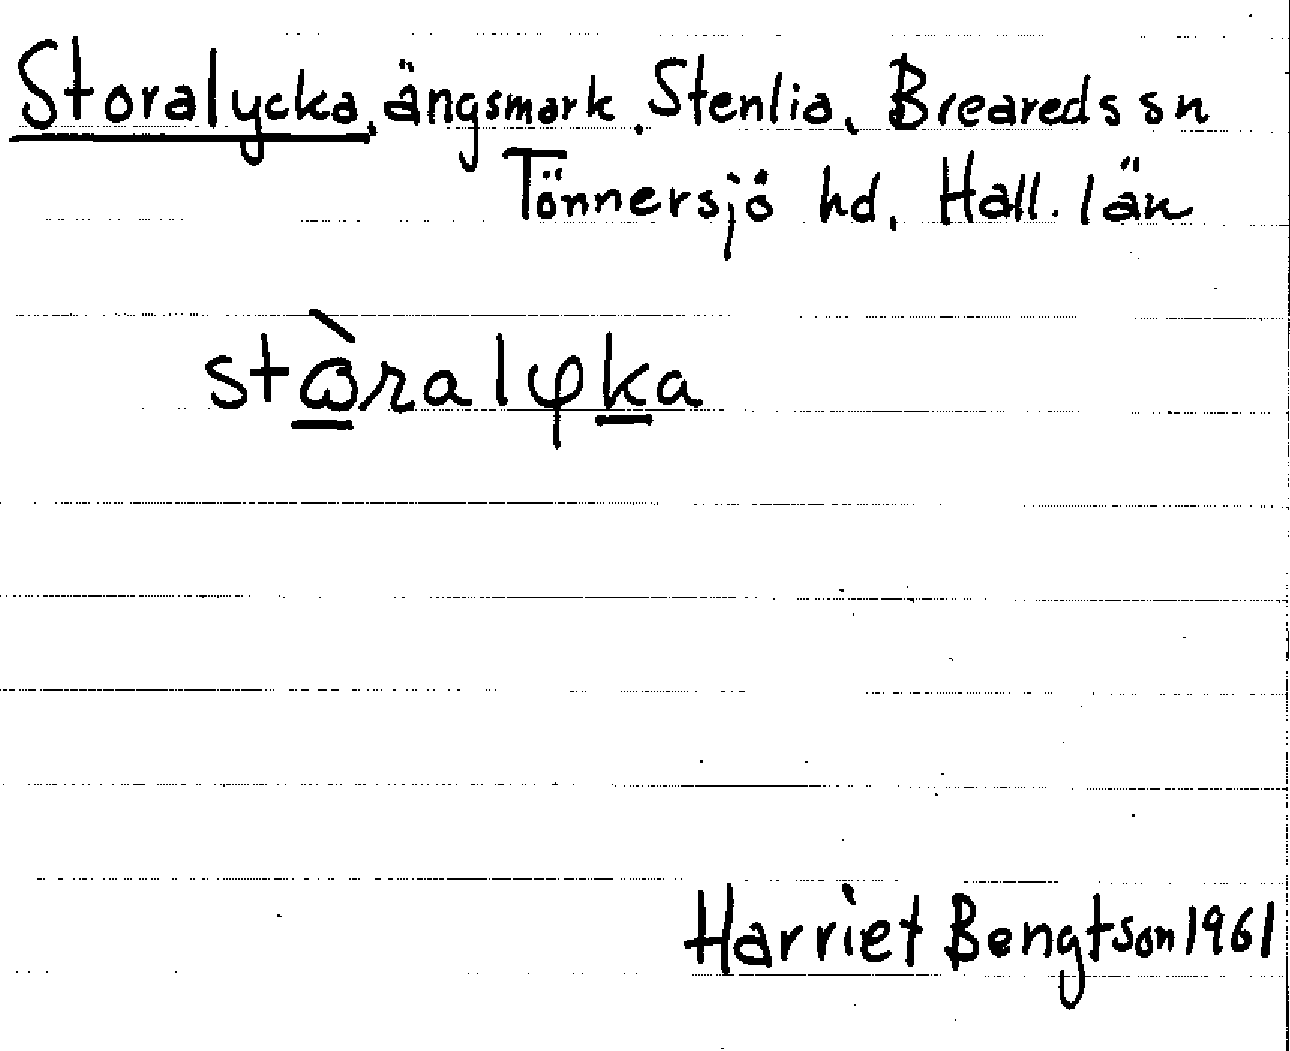 Storalycka, ängsmark, Stenlia, Breareds sn
Tönnersjö hd, Hall. län
stꞷ̀ralφka
Harriet Bengtson 1961